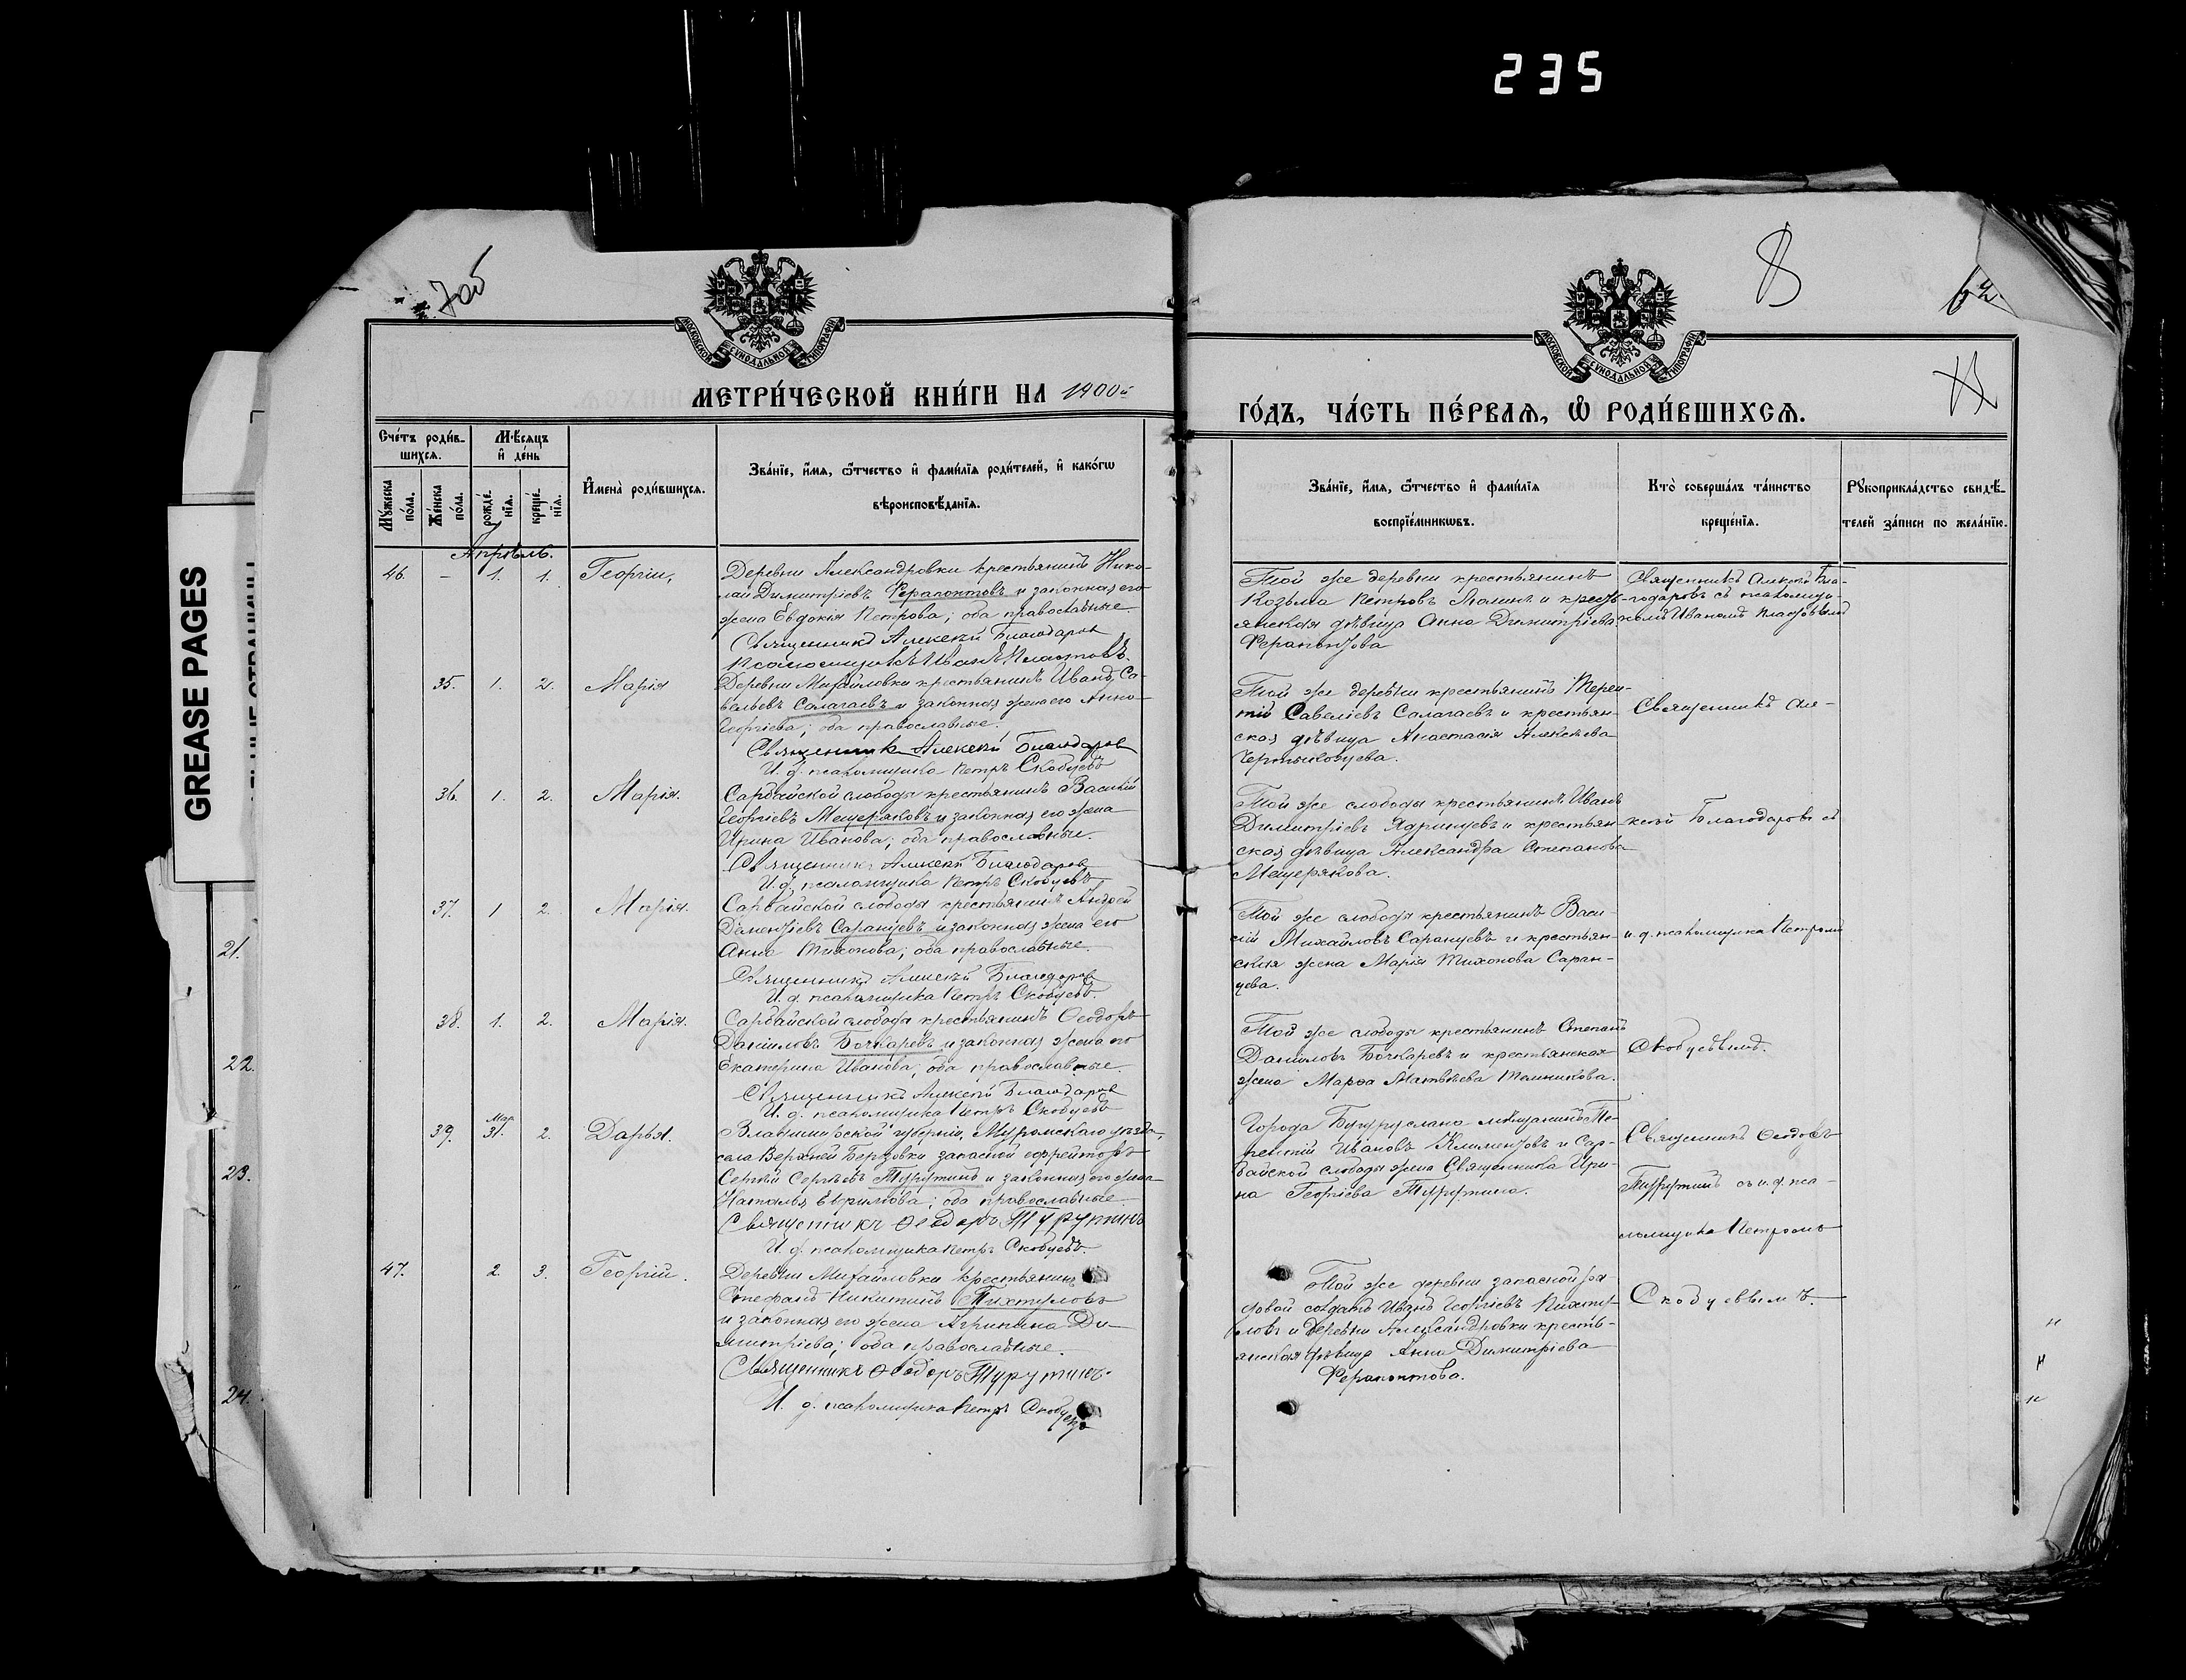 235
GREASE PAGES
8
МОСКОВСКОЙ СѴНОДАЛЬНОЙ ТИПОГРАФІИ
МОСКОВСКОЙ СѴНОДАЛЬНОЙ ТИПОГРАФІИ
МЕТРИ́ЧЕСКОЙ КНИ́ГИ НА 1900й
ГО́ДЪ, ЧА́СТЬ ПЕ́РВАѦ, Ѡ҆ РОДИ́ВШИХСѦ.
Сче́тъ роди́в-
шихсѧ.
Мѣ́сѧцъ
и҆ де́нь
Мꙋ́жеска
по́ла.
Же́нска
по́ла.
рожде́-
нїѧ.
креще́-
нїѧ.
И҆мена̀ роди́вшихсѧ.
Зва́нїе, и҆́мѧ, ѻ҆́тчество и҆ фами́лїѧ роди́телей, и҆ како́гѡ
вѣроисповѣ́данїѧ.
Зва́нїе, и҆́мѧ, ѻ҆́тчество и҆ фами́лїѧ
воспрїе́мникѡвъ.
Кто̀ соверша́лъ та́инство
креще́нїѧ.
Рꙋкоприкла́дство свидѣ́-
телей за́писи по жела́нїю.
Апрѣль.
46. – 1. 1. Георгій,
Деревни Александровки крестьянинъ Нико-
лай Димитріевъ Ферапонтовъ и законная его
жена Евдокія Петрова; оба православные
Священникъ Алексѣй Благодаровъ
Псаломщикъ Иванъ
Той же деревни крестьянинъ
Козьма Петровъ и кресть-
янская дѣвица Анна Димитріева
Ферапонтова
Священникъ Алексѣй Бла-
годаровъ съ псаломщи-
комъ Иваномъ
35. 1. 2. Марія
Деревни Михайловки крестьянинъ Иванъ Са-
вельевъ Салагаевъ и законная жена его Анна
Георгіева; оба православные.
Священникъ Алексѣй Благодаровъ
И. д. псаломщика Петръ Скобцевъ
Той же деревни крестьянинъ Терен-
тій Савеліевъ Салагаевъ и крестьян-
ская дѣвица Анастасія Алексѣева
Священникъ Але-
36. 1. 2. Марія.
Сарбайской слободы крестьянинъ Василій
Георгіевъ Мещеряковъ и законная его жена
Ирина Иванова; оба православные.
Священникъ Алексѣй Благодаровъ
И. д. псаломщика Петръ Скобцевъ
Той же слободы крестьянинъ Иванъ
Димитріевъ Ядринцевъ и крестьян-
ская дѣвица Александра Степанова
Мещерякова.
ксѣй Благодаровъ съ
37. 1 2. Марія.
Сарбайской слободы крестьянинъ Андрей
Дементіевъ Саранцевъ и законная жена его
Анна Тихонова; оба православные
Священникъ Алексѣй Благодаровъ
И. д. псаломщика Петръ Скобцевъ.
Той же слободы крестьянинъ Васи-
лій Михайловъ Саранцевъ и крестьян-
ская жена Марія Тихонова Саран-
цева.
и. д. псаломщика Петромъ
38. 1. 2. Марія.
Сарбайской слободы крестьянинъ Ѳеодоръ
Даниловъ Бочкаревъ и законная жена его
Екатерина Иванова, оба православные.
Священникъ Алексѣй Благодаровъ
И. д. псаломщика Петръ Скобцевъ
Той же слободы крестьянинъ Степанъ
Даниловъ Бочкаревъ и крестьянская
жена Марѳа Матвѣева Темникова.
Скобцевымъ.
39. Мар. 31. 2. Дарья.
Владимирской губерніи, Муромскаго уѣзда,
села Верхней Березовки запасной ефрейторъ
Сергѣй Сергѣевъ Турутинъ и законная его жена
Наталья Ефимова; оба православные
Священникъ Ѳеодоръ Турутинъ
И. д. псаломщика Петръ Скобцевъ.
Города Бугуруслана мѣщанинъ Те-
рентій Ивановъ Климентовъ и Сар-
байской слободы жена Священника Ири-
на Георгіева Турутина.
Священникъ Ѳеодоръ
Турутинъ съ и. д. пса-
ломщика Петромъ
47. 2. 3. Георгій.
Деревни Михайловки крестьянинъ
Стефанъ Никитинъ Пихтуловъ
и законная его жена Агрипина Ди-
митріева; оба православные.
Священникъ Ѳеодоръ Турутинъ.
И. д. псаломщика Петръ Скобцевъ
Той же деревни запасной ря-
довой солдатъ Иванъ Георгіевъ Пихту-
ловъ и деревни Александровки кресть-
янская дѣвица Анна Димитріева
Ферапонтова.
Скобцевымъ.
21.
22.
23.
24.